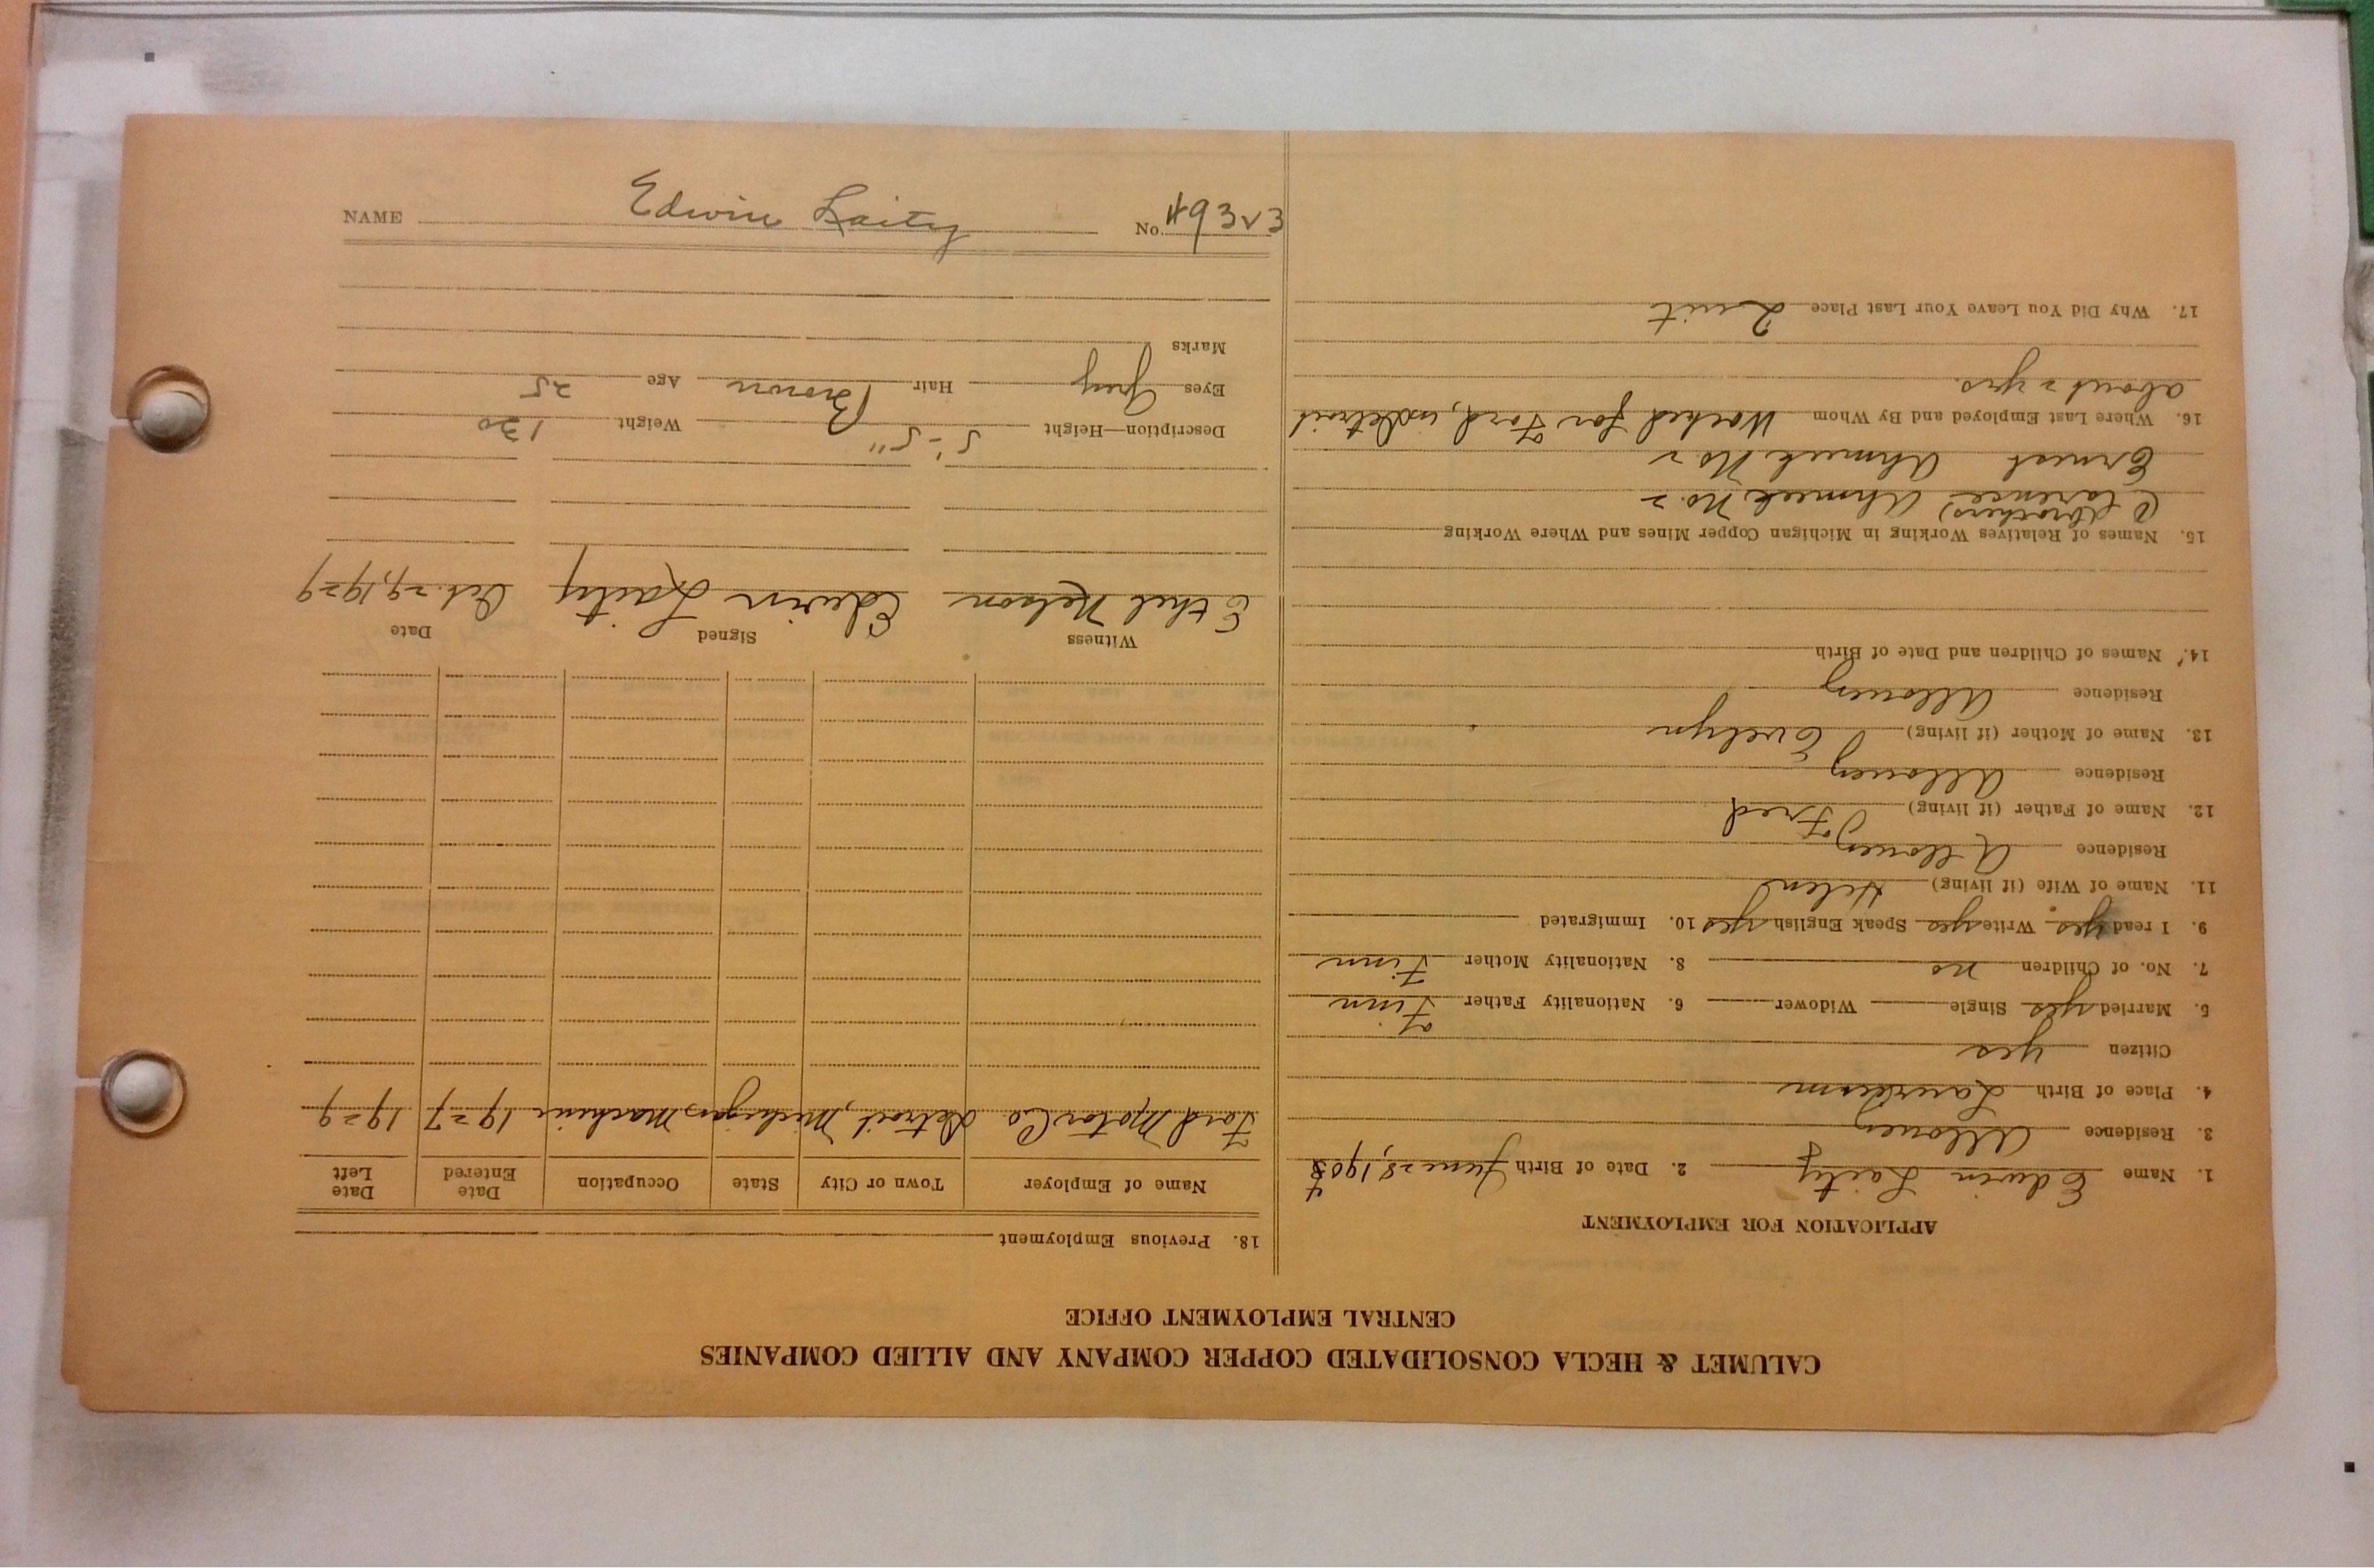 CALUMET & HECLA CONSOLIDATED COPPER COMPANY AND ALLIED COMPANIES
CENTRAL EMPLOYMENT OFFICE
APPLICATION FOR EMPLOYMENT
1. Name Edwin Laity 2. Date of Birth June 28, 1904
3. Residence Allouez
4. Place of Birth Laurium
Citizen yes
5. Married yes Single Widower 6. Nationality Father Finn
7. No. of Children no 8. Nationality Mother Finn
9. I read yes Write yes Speak English yes 10. Immigrated
11. Name of Wife (if living) Helen
Residence Allouez
12. Name of Father (if living) Fred
Residence Allouez
13. Name of Mother (if living) Evelyn
Residence Allouez
14. Names of Children and Date of Birth
15. Names of Relatives Working in Michigan Copper Mines and Where Working
(brothers)
Clarence Ahmeek No. 2
Ernest Ahmeek No. 2
16. Where Last Employed and By Whom Worked for Ford, in Detroit
about 2 yrs.
17. Why Did You Leave Your Last Place Quit
18. Previous Employment
Name of Employer Town or City State Occupation Date Entered Date Left
Ford Motor Co. Detroit, Michigan Machine 1927 1929
Witness Signed Date
Ethel Nelson Edwin Laity Oct. 29, 1929
Description—Height 5'-5" Weight 130
Eyes Gray Hair Brown Age 25
Marks
NAME Edwin Laity No. #9323